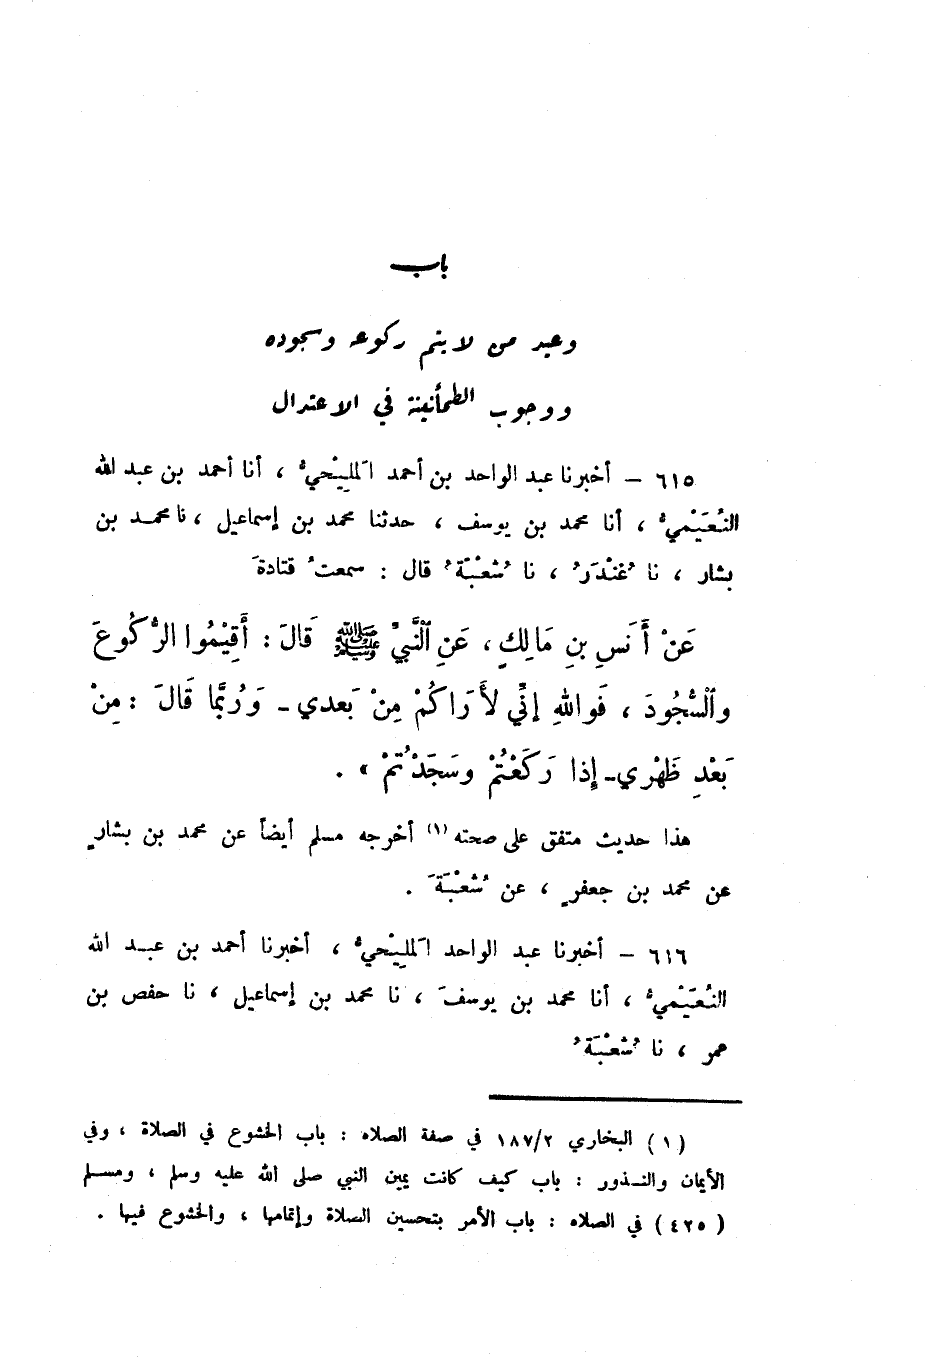 باب
وعيد من لا يتم ركوعه وسجوده
ووجوب الطمأنينة في الاعتدال
٦١٥ – أخبرنا عبد الواحد بن أحمد المَلِيْحيُّ ، أنا أحمد بن عبد الله
النُّعَيْميُّ ، أنا محمد بن يوسف ، حدثنا محمد بن إسماعيل ، نا محمد بن
بشار ، نا غُنْدَرُ ، نا شُعْبَةُ قال : سمعتُ قتادةَ
عَنْ أَنَسِ بنِ مَالِكٍ ، عَنِ ٱلنَّبيِّ ﷺ قَالَ : أَقِيْمُوا الرُّكُوعَ
وٱلسُّجُودَ ، فَوالله إنِّي لأَرَاكُمْ مِنْ بَعدي – وَرُبَّمَا قَالَ : مِنْ
بَعْدِ ظَهْري – إذا رَكَعْتُمْ وسَجَدْتُمْ » .
هذا حديث متفق على صحته (١) أخرجه مسلم أيضاً عن محمد بن بشارٍ
عن محمد بن جعفرٍ ، عن شُعْبَةَ .
٦١٦ – أخبرنا عبد الواحد المَلِيْحيُّ ، أخبرنا أحمد بن عبد الله
النُّعَيْميُّ ، أنا محمد بن يوسفَ ، نا محمد بن إسماعيل ، نا حفص بن
عمر ، نا شُعْبَةُ
(١) البخاري ١٨٧/٢ في صفة الصلاه : باب الخشوع في الصلاة ، وفي
الأيمان والنذور : باب كيف كانت يمين النبي صلى الله عليه وسلم ، ومسلم
(٤٢٥) في الصلاه : باب الأمر بتحسين الصلاة وإتمامها ، والخشوع فيها .